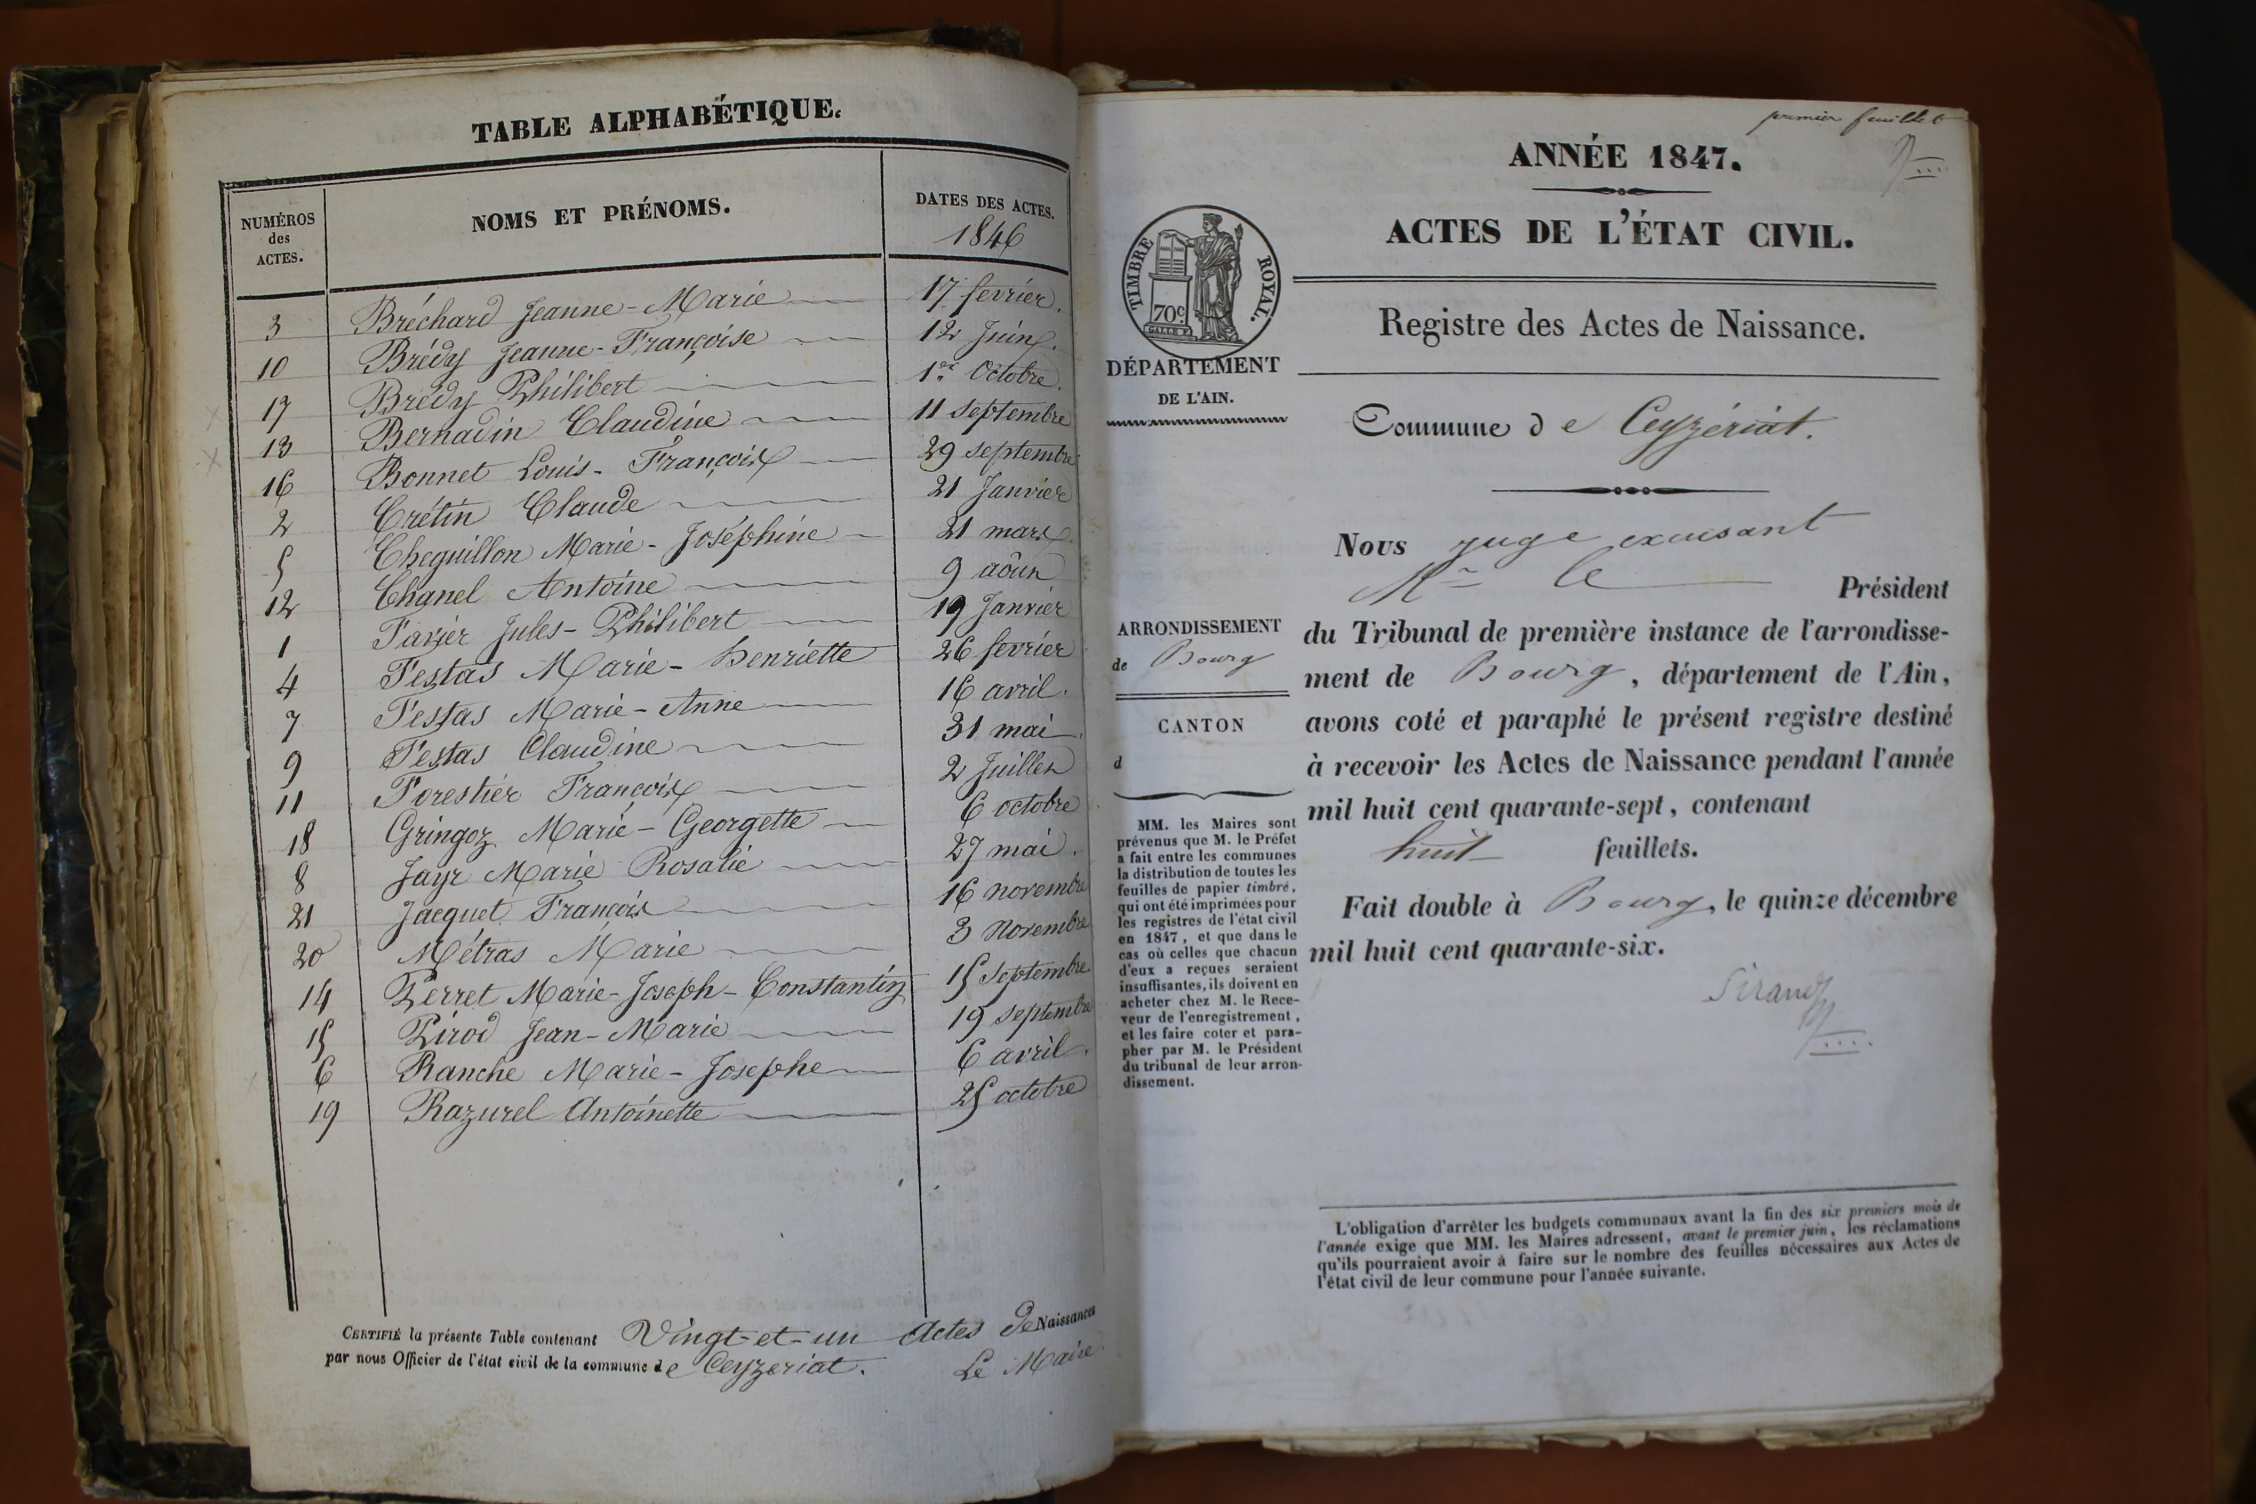 TABLE ALPHABÉTIQUE.
NUMÉROS des ACTES. NOMS ET PRÉNOMS. DATES DES ACTES. 1846
3 Bréchard Jeanne-Marie 17 fevrier.
10 Brédy Jeanne-Françoise 12 Juin.
17 Brédy Philibert 1er Octobre.
13 Bernadin Claudine 11 septembre
16 Bonnet Louis-François 29 septembre
2 Crétin Claude 21 Janvier
5 Cheguillon Marie-Joséphine 21 mars
12 Chanel Antoine 9 aôut
1 Favier Jules-Philibert 19 Janvier
4 Festas Marie-henriette 26 fevrier
7 Festas Marie-Anne 16 avril.
9 Festas Claudine 31 mai.
11 Forestier François 2 Juillet
18 Gringoz Marie-Georgette 6 octobre
8 Jayr Marie Rosalie 27 mai.
21 Jacquet François 16 novembre
20 Métras Marie 3 Novembre
14 Perret Marie-Joseph-Constantin 15 septembre
15 Pirod Jean-Marie 19 septembre
6 Ranche Marie-Josephe 6 avril.
19 Razurel Antoinette 25 octobre
CERTIFIÉ la présente Table contenant Vingt-et-un Actes de Naissances
par nous Officier de l'état civil de la commune de Ceyzeriat. Le Maire
premier feuillet
ANNÉE 1847.
ACTES DE L'ÉTAT CIVIL.
TIMBRE ROYAL.
70c.
Registre des Actes de Naissance.
DÉPARTEMENT
DE L'AIN.
Commune de Ceyzériat.
Nous juge excusant
Mr le Président
ARRONDISSEMENT
de Bourg
CANTON
d
du Tribunal de première instance de l'arrondisse-
ment de Bourg, département de l'Ain,
avons coté et paraphé le présent registre destiné
à recevoir les Actes de Naissance pendant l'année
mil huit cent quarante-sept, contenant
huit feuillets.
Fait double à Bourg, le quinze décembre
mil huit cent quarante-six.
Sirand
MM. les Maires sont
prévenus que M. le Préfet
a fait entre les communes
la distribution de toutes les
feuilles de papier timbré,
qui ont été imprimées pour
les registres de l'état civil
en 1847, et que dans le
cas où celles que chacun
d'eux a reçues seraient
insuffisantes, ils doivent en
acheter chez M. le Rece-
veur de l'enregistrement,
et les faire coter et para-
pher par M. le Président
du tribunal de leur arron-
dissement.
L'obligation d'arrêter les budgets communaux avant la fin des six premiers mois de
l'année exige que MM. les Maires adressent, avant le premier juin, les réclamations
qu'ils pourraient avoir à faire sur le nombre des feuilles nécessaires aux Actes de
l'état civil de leur commune pour l'année suivante.